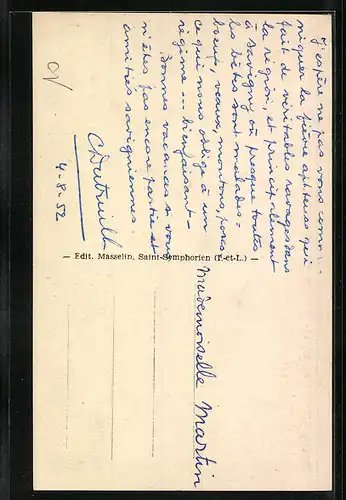 J'espère ne pas vous commu-
niquer la fièvre aphteuse qui
fait de véritables ravages dans
la région, et principalement
à Savigny où presque toutes
les bêtes sont malades -
boeufs, veaux, moutons, porcs
ce qui nous oblige à un
régime --- bienfaisant -
Bonnes vacances si vous
n'êtes pas encore partie et
amitiés savigniennes.
4-8-52
— Edit. Masselin, Saint-Symphorien (I.-et-L.) —
Mademoiselle Martin